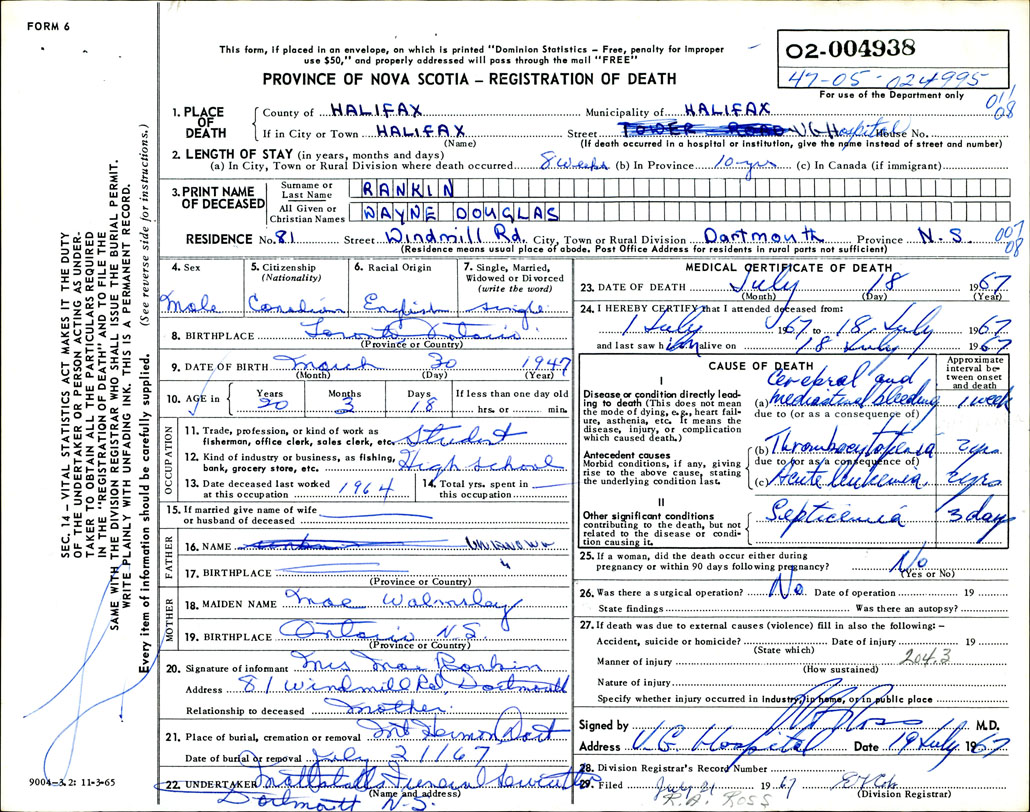 FORM 6
This form, if placed in an envelope, on which is printed "Dominion Statistics – Free, penalty for improper
use $50," and properly addressed will pass through the mail "FREE"
O2-004938
47-05-024995
For use of the Department only
011
08
PROVINCE OF NOVA SCOTIA – REGISTRATION OF DEATH
1. PLACE OF DEATH
County of HALIFAX Municipality of HALIFAX
If in City or Town HALIFAX Street TOWER ROAD V G Hospital House No.
(Name) (If death occurred in a hospital or institution, give the name instead of street and number)
2. LENGTH OF STAY (in years, months and days)
(a) In City, Town or Rural Division where death occurred 8 weeks (b) In Province 10 yrs (c) In Canada (if immigrant)
3. PRINT NAME OF DECEASED
Surname or Last Name RANKIN
All Given or Christian Names WAYNE DOUGLAS
RESIDENCE No. 81 Street Windmill Rd. City, Town or Rural Division Dartmouth Province N.S.
(Residence means usual place of abode. Post Office Address for residents in rural parts not sufficient)
007
08
4. Sex
Male
5. Citizenship (Nationality)
Canadian
6. Racial Origin
English
7. Single, Married, Widowed or Divorced (write the word)
single
8. BIRTHPLACE Toronto Ontario
(Province or Country)
9. DATE OF BIRTH March 30 1947
(Month) (Day) (Year)
10. AGE in Years 20 Months 3 Days 18 If less than one day old hrs. or min.
OCCUPATION
11. Trade, profession, or kind of work as fisherman, office clerk, sales clerk, etc. Student
12. Kind of industry or business, as fishing, bank, grocery store, etc. High school
13. Date deceased last worked at this occupation 1964
14. Total yrs. spent in this occupation
15. If married give name of wife or husband of deceased
FATHER
16. NAME unknown
17. BIRTHPLACE "
(Province or Country)
MOTHER
18. MAIDEN NAME Mae Walmsley
19. BIRTHPLACE Ontario N.S.
(Province or Country)
20. Signature of informant Mrs Mae Rankin
Address 81 Windmill Rd, Dartmouth
Relationship to deceased Mother
21. Place of burial, cremation or removal Mt Hermon Dart
Date of burial or removal July 21/67
22. UNDERTAKER Mattatalls Funeral
(Name and address)
Dartmouth N.S.
MEDICAL CERTIFICATE OF DEATH
23. DATE OF DEATH July 18 1967
(Month) (Day) (Year)
24. I HEREBY CERTIFY that I attended deceased from:
1 July 1967 to 18 July 1967
and last saw him alive on 18 July 1967
CAUSE OF DEATH
Approximate interval between onset and death
I
Disease or condition directly leading to death (This does not mean the mode of dying, e.g., heart failure, asthenia, etc. It means the disease, injury, or complication which caused death.)
(a) Cerebral and mediastinal bleeding 1 week
due to (or as a consequence of)
Antecedent causes
Morbid conditions, if any, giving rise to the above cause, stating the underlying condition last.
(b) Thrombocytopenia 2 yrs
due to (or as a consequence of)
(c) Acute leukemia 2 yrs
II
Other significant conditions contributing to the death, but not related to the disease or condition causing it.
Septicemia 3 days
25. If a woman, did the death occur either during pregnancy or within 90 days following pregnancy? No
(Yes or No)
26. Was there a surgical operation? No. Date of operation 19
State findings Was there an autopsy?
27. If death was due to external causes (violence) fill in also the following: –
Accident, suicide or homicide? Date of injury 19
(State which)
Manner of injury 204.3
(How sustained)
Nature of injury
Specify whether injury occurred in industry, in home, or in public place
Signed by Ross M.D.
Address V.G. Hospital Date 19 July 1967
28. Division Registrar's Record Number
29. Filed July 21 1967
(Division Registrar)
R.A. ROSS
SEC. 14 – VITAL STATISTICS ACT MAKES IT THE DUTY
OF THE UNDERTAKER OR PERSON ACTING AS UNDER-
TAKER TO OBTAIN ALL THE PARTICULARS REQUIRED
IN THE "REGISTRATION OF DEATH" AND TO FILE THE
SAME WITH THE DIVISION REGISTRAR WHO SHALL ISSUE THE BURIAL PERMIT.
WRITE PLAINLY WITH UNFADING INK. THIS IS A PERMANENT RECORD.
Every item of information should be carefully supplied. (See reverse side for instructions.)
9004–3.2: 11-3-65